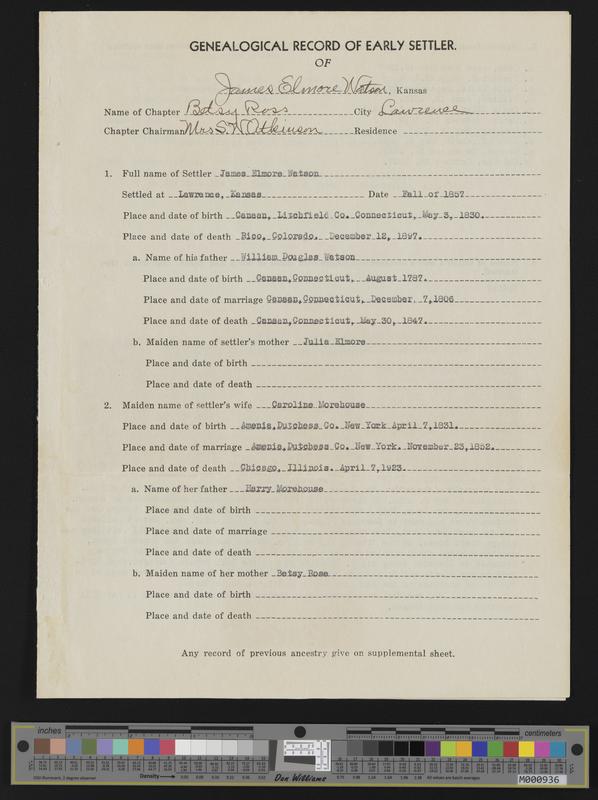 GENEALOGICAL RECORD OF EARLY SETTLER.
OF
James Elmore Watson, Kansas
Name of Chapter Betsy Ross City Lawrence
Chapter Chairman Mrs S. W. Atkinson Residence
1. Full name of Settler James Elmore Watson
Settled at Lawrence, Kansas Date Fall of 1857
Place and date of birth Canaan, Litchfield Co. Connecticut, May 3, 1830.
Place and date of death Rico, Colorado. December 12, 1897.
a. Name of his father William Douglas Watson
Place and date of birth Canaan, Connecticut, August 1787.
Place and date of marriage Canaan, Connecticut, December 7, 1806
Place and date of death Canaan, Connecticut, May 30, 1847.
b. Maiden name of settler's mother Julia Elmore
Place and date of birth
Place and date of death
2. Maiden name of settler's wife Caroline Morehouse
Place and date of birth Amenia, Dutchess Co. New York April 7, 1831.
Place and date of marriage Amenia, Dutchess Co. New York. November 23, 1852.
Place and date of death Chicago, Illinois. April 7, 1923.
a. Name of her father Harry Morehouse
Place and date of birth
Place and date of marriage
Place and date of death
b. Maiden name of her mother Betsy Rose
Place and date of birth
Place and date of death
Any record of previous ancestry give on supplemental sheet.
inches
centimeters
Density
Don Williams
M000936